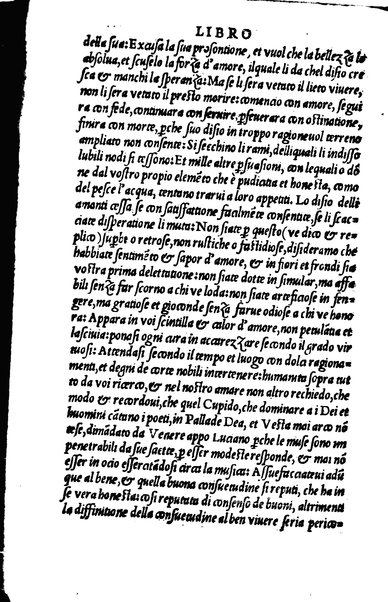 LIBRO
della sua: Excusa la sua prosontione, et vuol che la bellezza lo
absolua, et scuselo la forza d'amore, ilquale li da chel disio cre
sca & manchi la speranza: Ma se li sera vetato il lieto viuere,
non li sera vetato il presto morire: comencio con amore, segui
ra con fede, continuara con seruire, pseuerara con ostinatione,
finira con morte, pche suo disio in troppo ragioneuol terreno
ampliato non consente: Si secchino li rami, delliquali li indisso
lubili nodi si tessono: Et mille altre psuasioni, con lequali o dō
ne dal vostro propio elemēto che è pudicitia et honesta, como
del pesce l'acqua, tentano trarui a loro appetiti. Lo disio delli
amanti cessa se con satisfattione facilmēte consentite, se li scac=
ciate disperatione li muta: Non siate p questo (ve dico & re=
plico) supbe o retrose, non rustiche o fastidiose, disideramo che
habbiate sentimēto & sapor d'amore, & in fiori et frondi sia
vostra prima delettatione: non siate dotte in simular, ma affa
bili senza far scorno a chi ve loda: non siate arteficiose in fen=
gere, ma gratiose et gioconde senza farue odiose a chi ve hono
ra: Appara in voi scintilla & calor d'amore, non petulātia et
lasciuia: ponasi ogni cura in accarezzare secondo il grado vir
tuosi: Attendasi secondo il tempo et luogo con dola ragiona=
menti, et degni de corte nobili intertenere: humanita sopra tut
to da voi ricerco, & nel nostro amare non altro rechiedo, che
modo & recordoui, che quel Cupido, che dominare a i Dei et
huomini cātano i poeti, in Pallade Dea, et Vesta mai arco nō
tese, dimādato da Venere appo Luciano pche le muse sono im
penetrabili da sue saette, p esser modeste responde, & mai nō
esser in ocio essercitādosi circa la musica: Assuefacciateui adū
que al bene, & quella buona consuetudine si reputi, che ha in
se vera honesta: cosi reputata di consenso de buoni, altrimenti
la diffinitione della consuetudine al ben viuere seria perico=